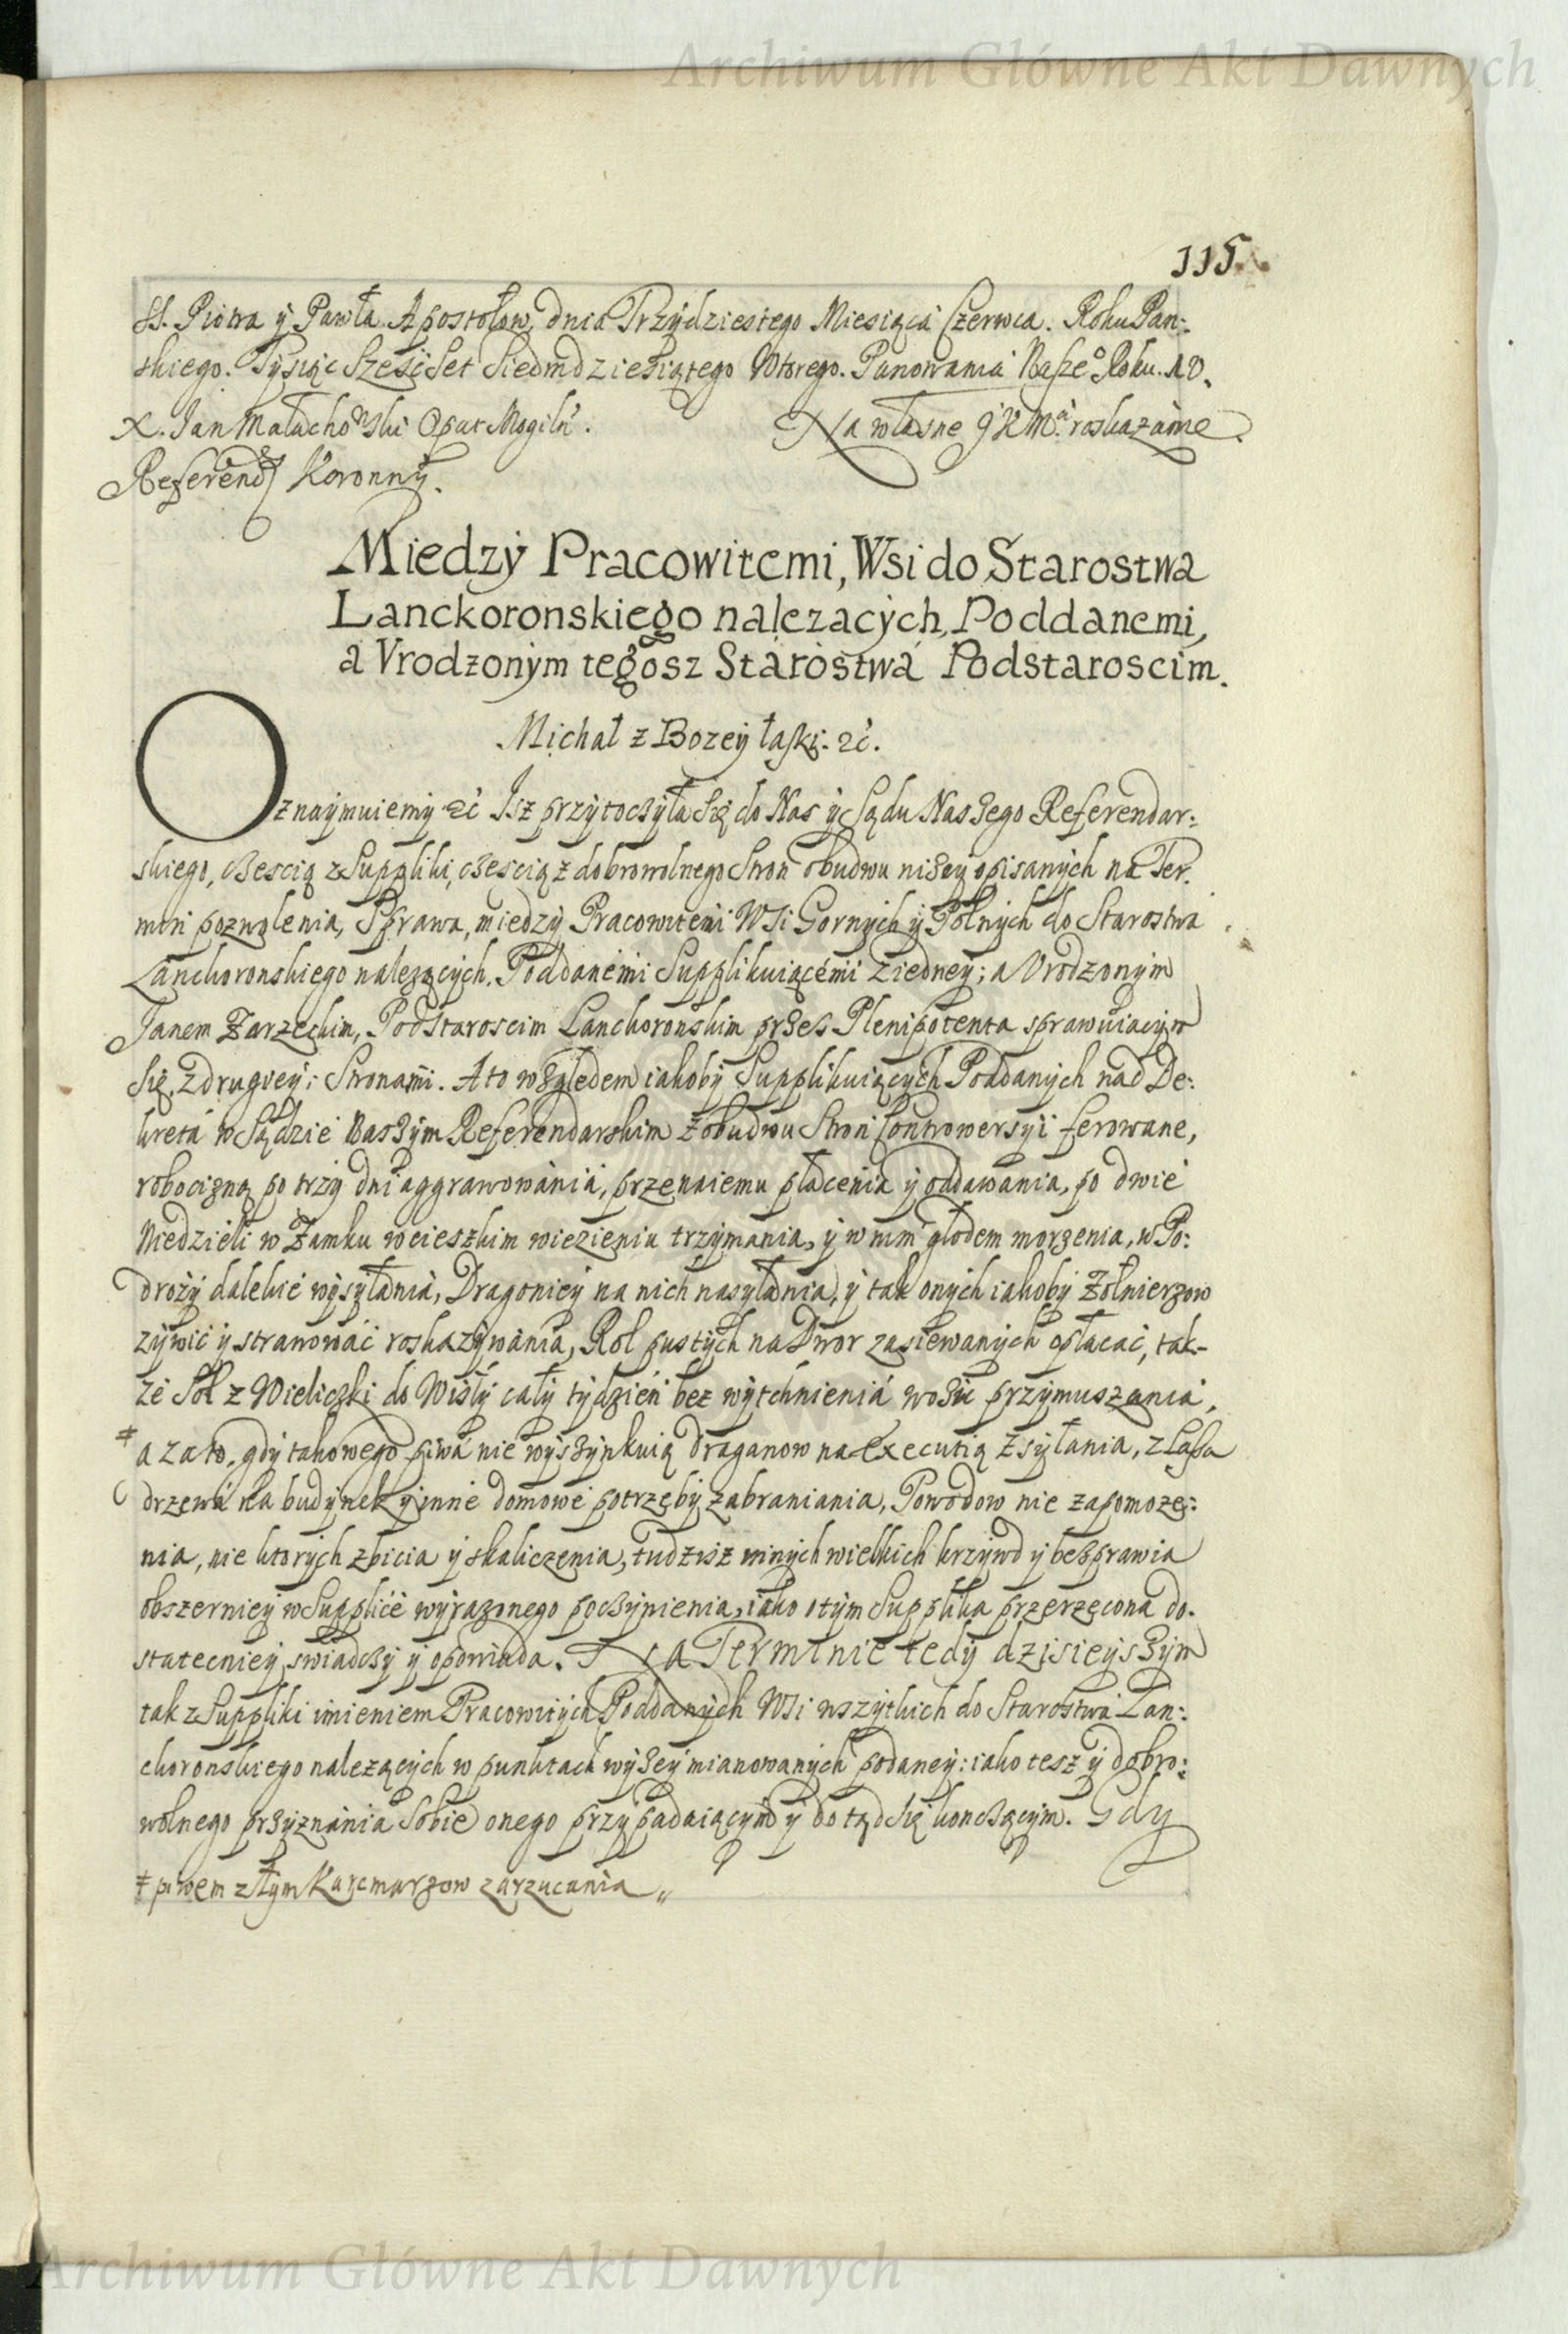 Archiwum Główne Akt Dawnych
115.
SS. Piotra ÿ Pawła Apostołow, dnia Trzÿdziestego Miesiąca Czerwca. Roku Pan:
skiego. Tÿsiąc Sześć Set Siedmdziesiątego Wtorego. Panowania Nasze° Roku.
X. Jan Małachowski Opat Mogiln̄.
Na własne JKMći roskazanie.
Referend Koronnÿ.
Miedzÿ Pracowitemi, Wsi do Starostwa
Lanckoronskiego nalezacÿch, Poddanemi,
a Vrodzonÿm tegosz Starostwa Podstaroscim.
Michał z Bozeÿ łaski. &c.
Oznaÿmuiemÿ &c Isz przÿtoczÿła Się do Nas ÿ Sądu Naszego Referendar:
skiego, czescią z Suppliki, częscią z dobrowolnego Stron obudwu niżeÿ opisanÿch na Ter.
min pozwolenia, Sprawa, miedzÿ Pracowitemi Wsi Gornÿch ÿ Polnÿch do Starostwa
Lanckoronskiego nalezącÿch, Poddanemi Supplikuiącémi z iedneÿ; a Vrodzonÿm
Janem Zarzeckim, Podstaroscim Lanckoronskim przes Plenipotenta sprawuiacÿm
się, z drugveÿ; Stronami. A to względem iakobÿ Supplikuiącÿch Poddanÿch nad De:
kreta w Sądzie Naszÿm Referendarskim z obudwu Stron Controwersÿi ferowane,
robocizną po trzÿ dni aggrawowania, przenaiemu płacenia ÿ oddawania, po dwie
Niedzieli w Zamku wcieszkim wiezieniu trzÿmania, ÿ w nim głodem morzenia, w Po:
drozÿ dalekie wÿsÿłania, Dragonieÿ na nich nasyłania, ÿ tak onÿch iakobÿ Zołnierzow
zÿwić ÿ strawować roskazÿwania, Rol pustÿch na Dwor zasiewanÿch opłacać, tak-
ze Sol z Wieliczki do Wisłÿ całÿ tÿdzień bez wÿtchnienia wozić przÿmuszania,
‡ a za to, gdÿ takowego piwa nie wÿszÿnkuią draganow na executią zsÿłania, z Lasa
drzewa na budÿnek ÿ inne domowe potrzebÿ zabraniania, Powodow nie zapomoże:
nia, nie ktorÿch zbicia ÿ skaliczenia, tudzisz innÿch wielkich krzÿwd ÿ bezprawia
obszernieÿ w Supplice wÿrazonego poczÿnienia, iako o tÿm Supplika przerzęcona do.
statecznieÿ swiadczÿ ÿ opowiada. Na Terminie tedÿ dzisieÿszÿm
tak z Suppliki imieniem Pracowitÿch Poddanÿch Wsi wszÿtkich do Starostwa Lan:
ckoronskiego nalezącÿch w punktach wÿżeÿ mianowanÿch podaneÿ: iako tesz ÿ dobro:
wolnego przÿznania Sobie onego przÿpadaiącÿm ÿ do tąd Się konczącÿm. Gdÿ
‡ piwem złÿm Karcmarzow zarzucania
Archiwum Główne Akt Dawnych